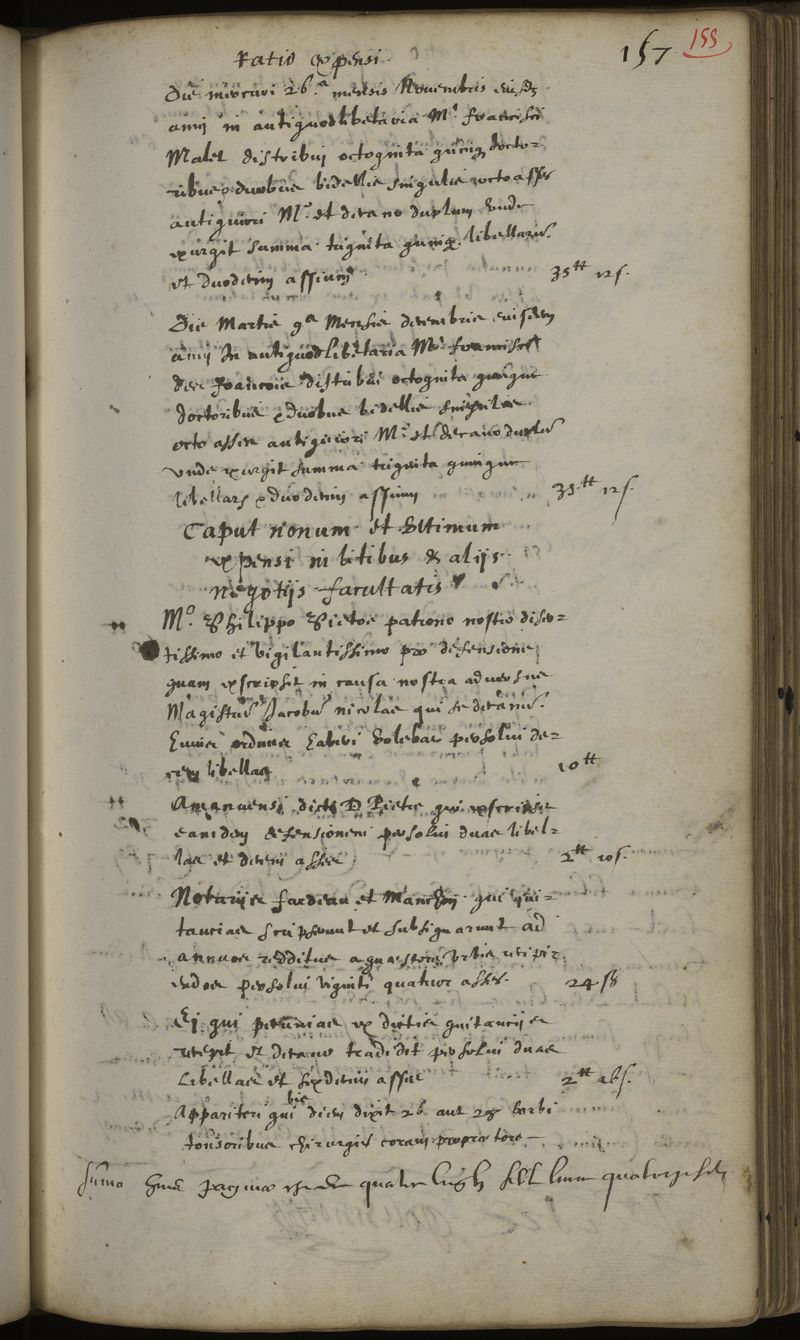 Ratio expensi
157 155
Die mercuri 26.a mensis Novembris eiusdem
anni in antiquodlibetaria Mri francisci
Malet distribui octoginta quinque docto-
ribus & duobus bidellis singulis octo asses
antiquiori Mro et decano duplum unde
exurgit summa triginta quinque libellarum
et duodecim assium 35tt 12s.
Die Martis 9a Mensis decembris eiusdem
anni In antiquodlibetaria Mri francisci
distribui octoginta quinque
doctoribus & duobus bidellis singulis
octo asses antiquiori Mro et decano duplum
unde exurgit summa triginta quinque
libellars & duodecim assium 35tt 12s.
Caput nonum et Ultimum
expensi in litibus & alijs
negotijs facultatis
Mo. Philippo Pietre patrono nostro diser-
tissimo et vigilantissimo pro defensione
quam exscripsit in causa nostra adversus
Magistrum Jacobum nicolas qui se decanum
haberi volebat persolui de-
cem libellas 10tt
Amanuensi dicti D Pietre qui exscripsit
eamdem defensionem persolui duas libel-
las et decem asses 2tt 10s.
Notarijs fardeau et qui qui-
tancias scripserunt et subsignarunt ad
annuos redditus a quaestore urbis recipi-
endos persolui viginti quatuor asses. 24 ß
Ei qui pecunias ex dictis quitancijs
recepit et decano tradidit persolui duas
libellas et sexdecim asses 2tt 16s.
Apparitori qui bis diem dixit 26 aut 28 barbi
tonsoribus chirurgis coram praetore
Summa huius paginae